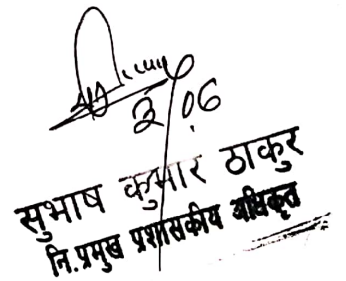 3/06
सुभाष कुमार ठाकुर
नि.प्रमुख प्रशासकीय अधिकृत